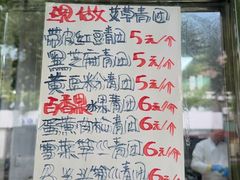 现做艾草青团
带皮红豆青团5元/个
黑芝麻青团5元/个
黄豆粉青团5元/个
百香果水果青团6元/个
蛋黄肉松青团6元/个
雪菜笋丁青团6元/个